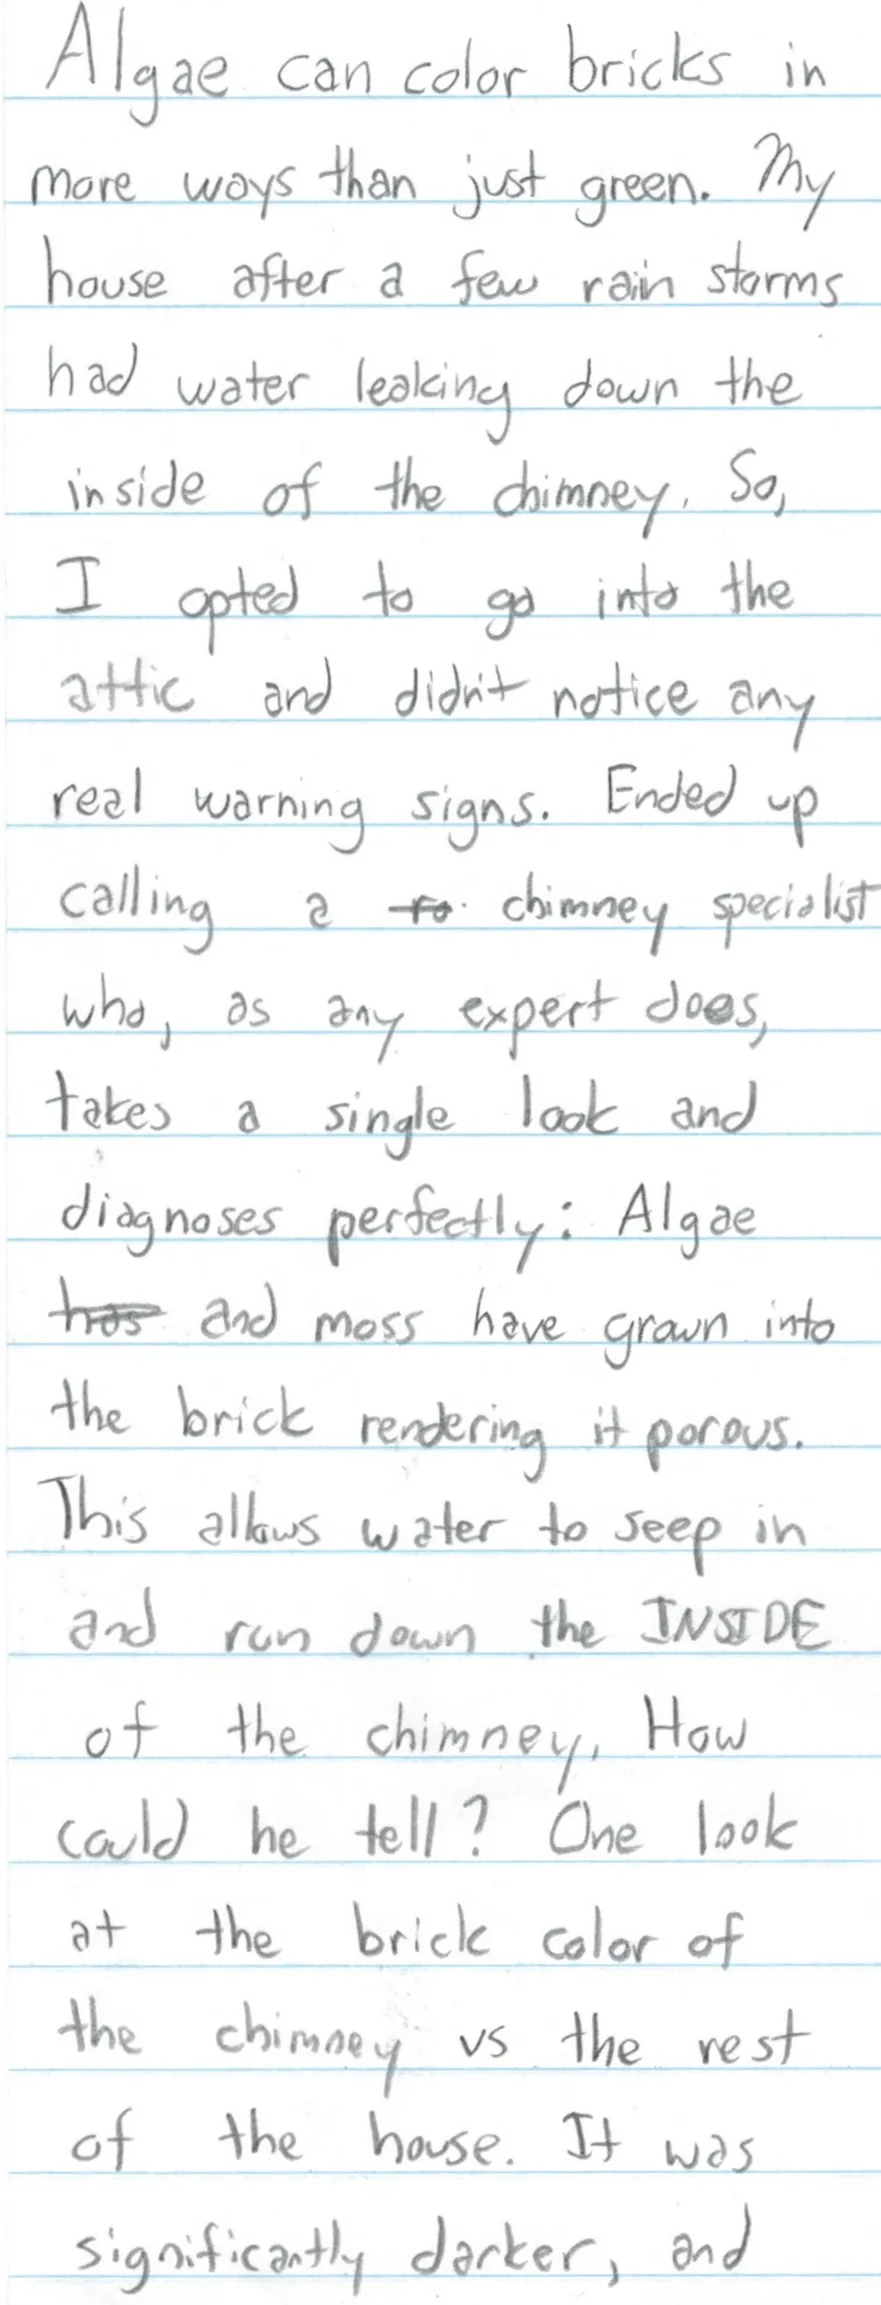 Algae can color bricks in
more ways than just green. My
house after a few rain storms
had water leaking down the
inside of the chimney. So,
I opted to go into the
attic and didn't notice any
real warning signs. Ended up
calling a chimney specialist
who, as any expert does,
takes a single look and
diagnoses perfectly: Algae
has and moss have grown into
the brick rendering it porous.
This allows water to seep in
and run down the INSIDE
of the chimney. How
could he tell? One look
at the brick color of
the chimney vs the rest
of the house. It was
significantly darker, and